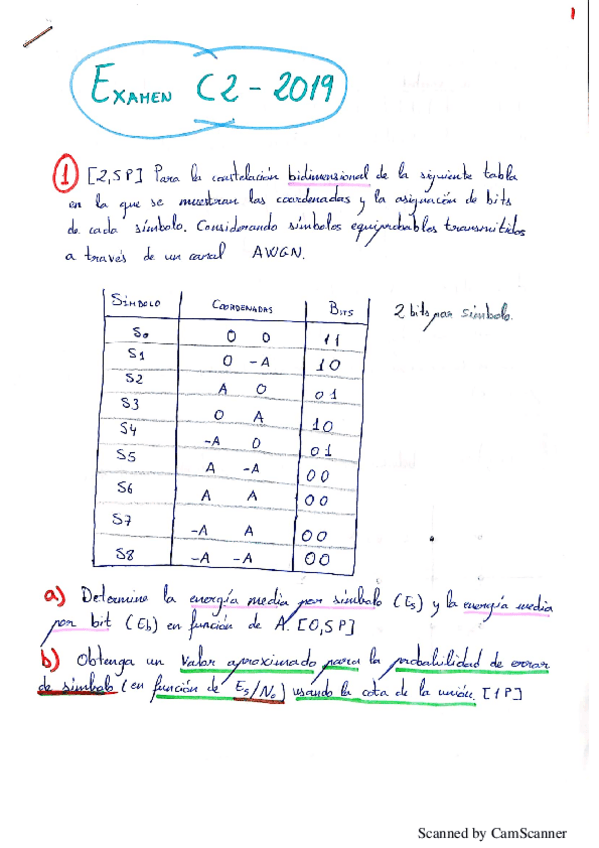 1
EXAMEN C2 - 2019
1 [2,5P] Para la constelación bidimensional de la siguiente tabla
en la que se muestran las coordenadas y la asignación de bits
de cada símbolo. Considerando símbolos equiprobables transmitidos
a través de un canal AWGN.
SÍMBOLO COORDENADAS BITS
2 bits por símbolo.
S0 0 0 11
S1 0 -A 10
S2 A 0 01
S3 0 A 10
S4 -A 0 01
S5 A -A 00
S6 A A 00
S7 -A A 00
S8 -A -A 00
a) Determine la energía media por símbolo (Es) y la energía media
por bit (Eb) en función de A. [0,5P]
b) Obtenga un valor aproximado para la probabilidad de error
de símbolo (en función de Es/No) usando la cota de la unión. [1P]
Scanned by CamScanner